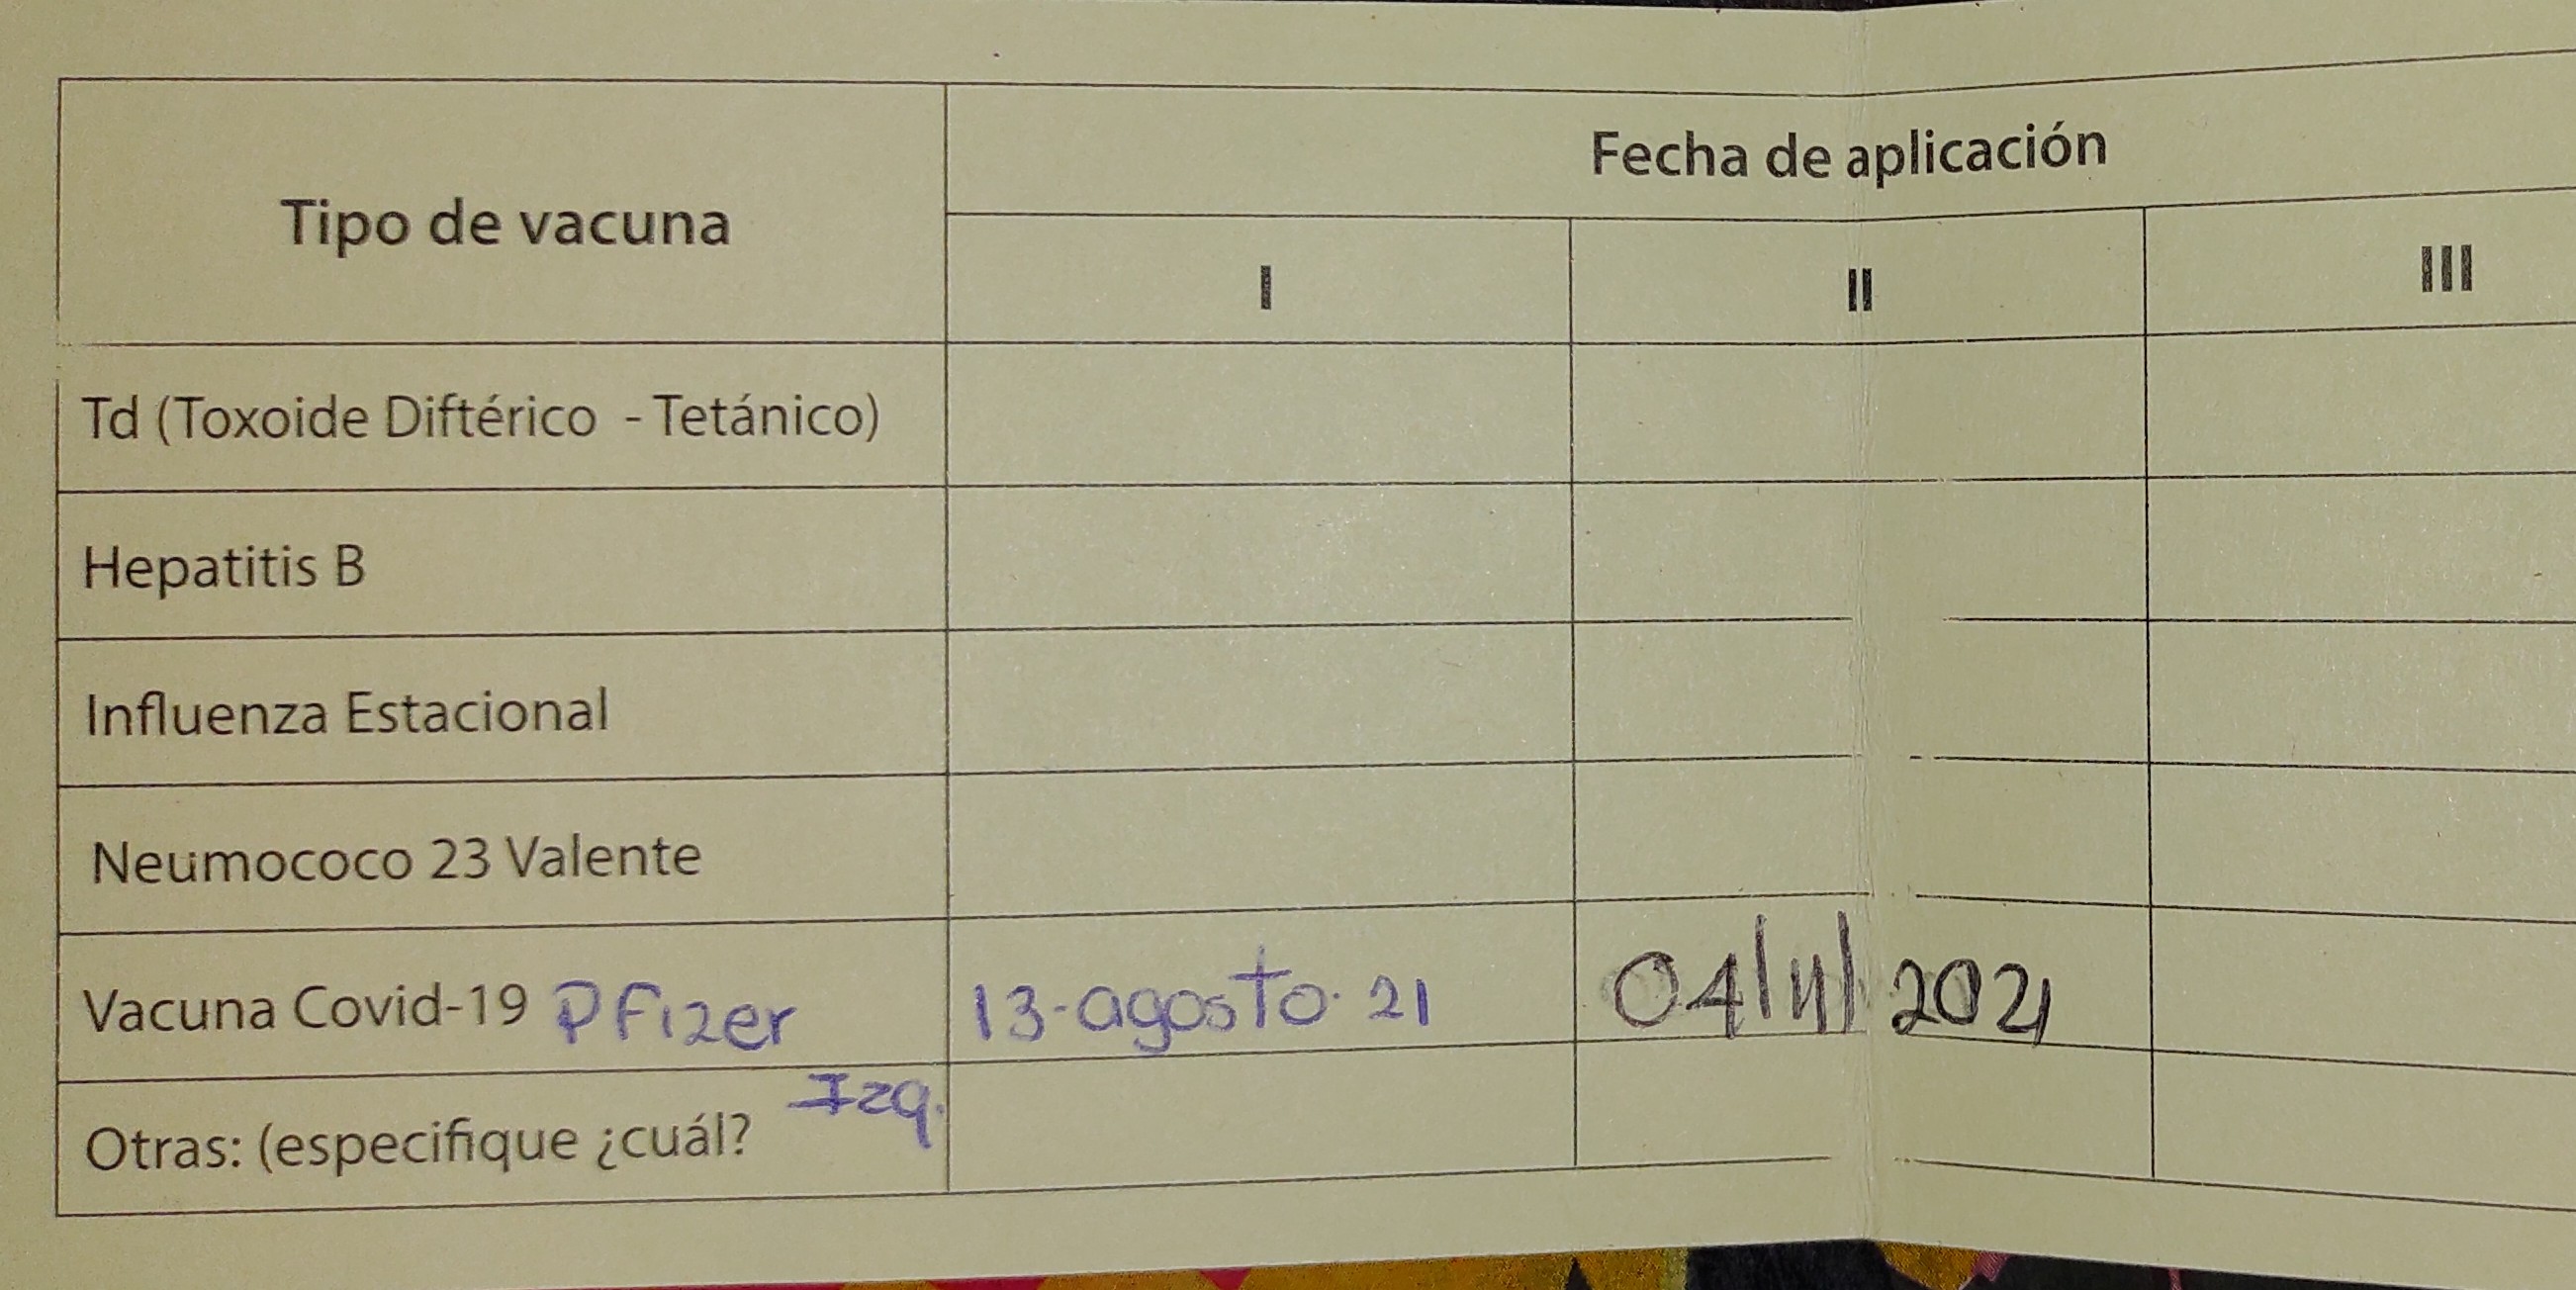 Tipo de vacuna
Fecha de aplicación
I II III
Td (Toxoide Diftérico - Tetánico)
Hepatitis B
Influenza Estacional
Neumococo 23 Valente
Vacuna Covid-19 Pfizer 13-agosto-21 04/11/2021
Izq.
Otras: (especifique ¿cuál?